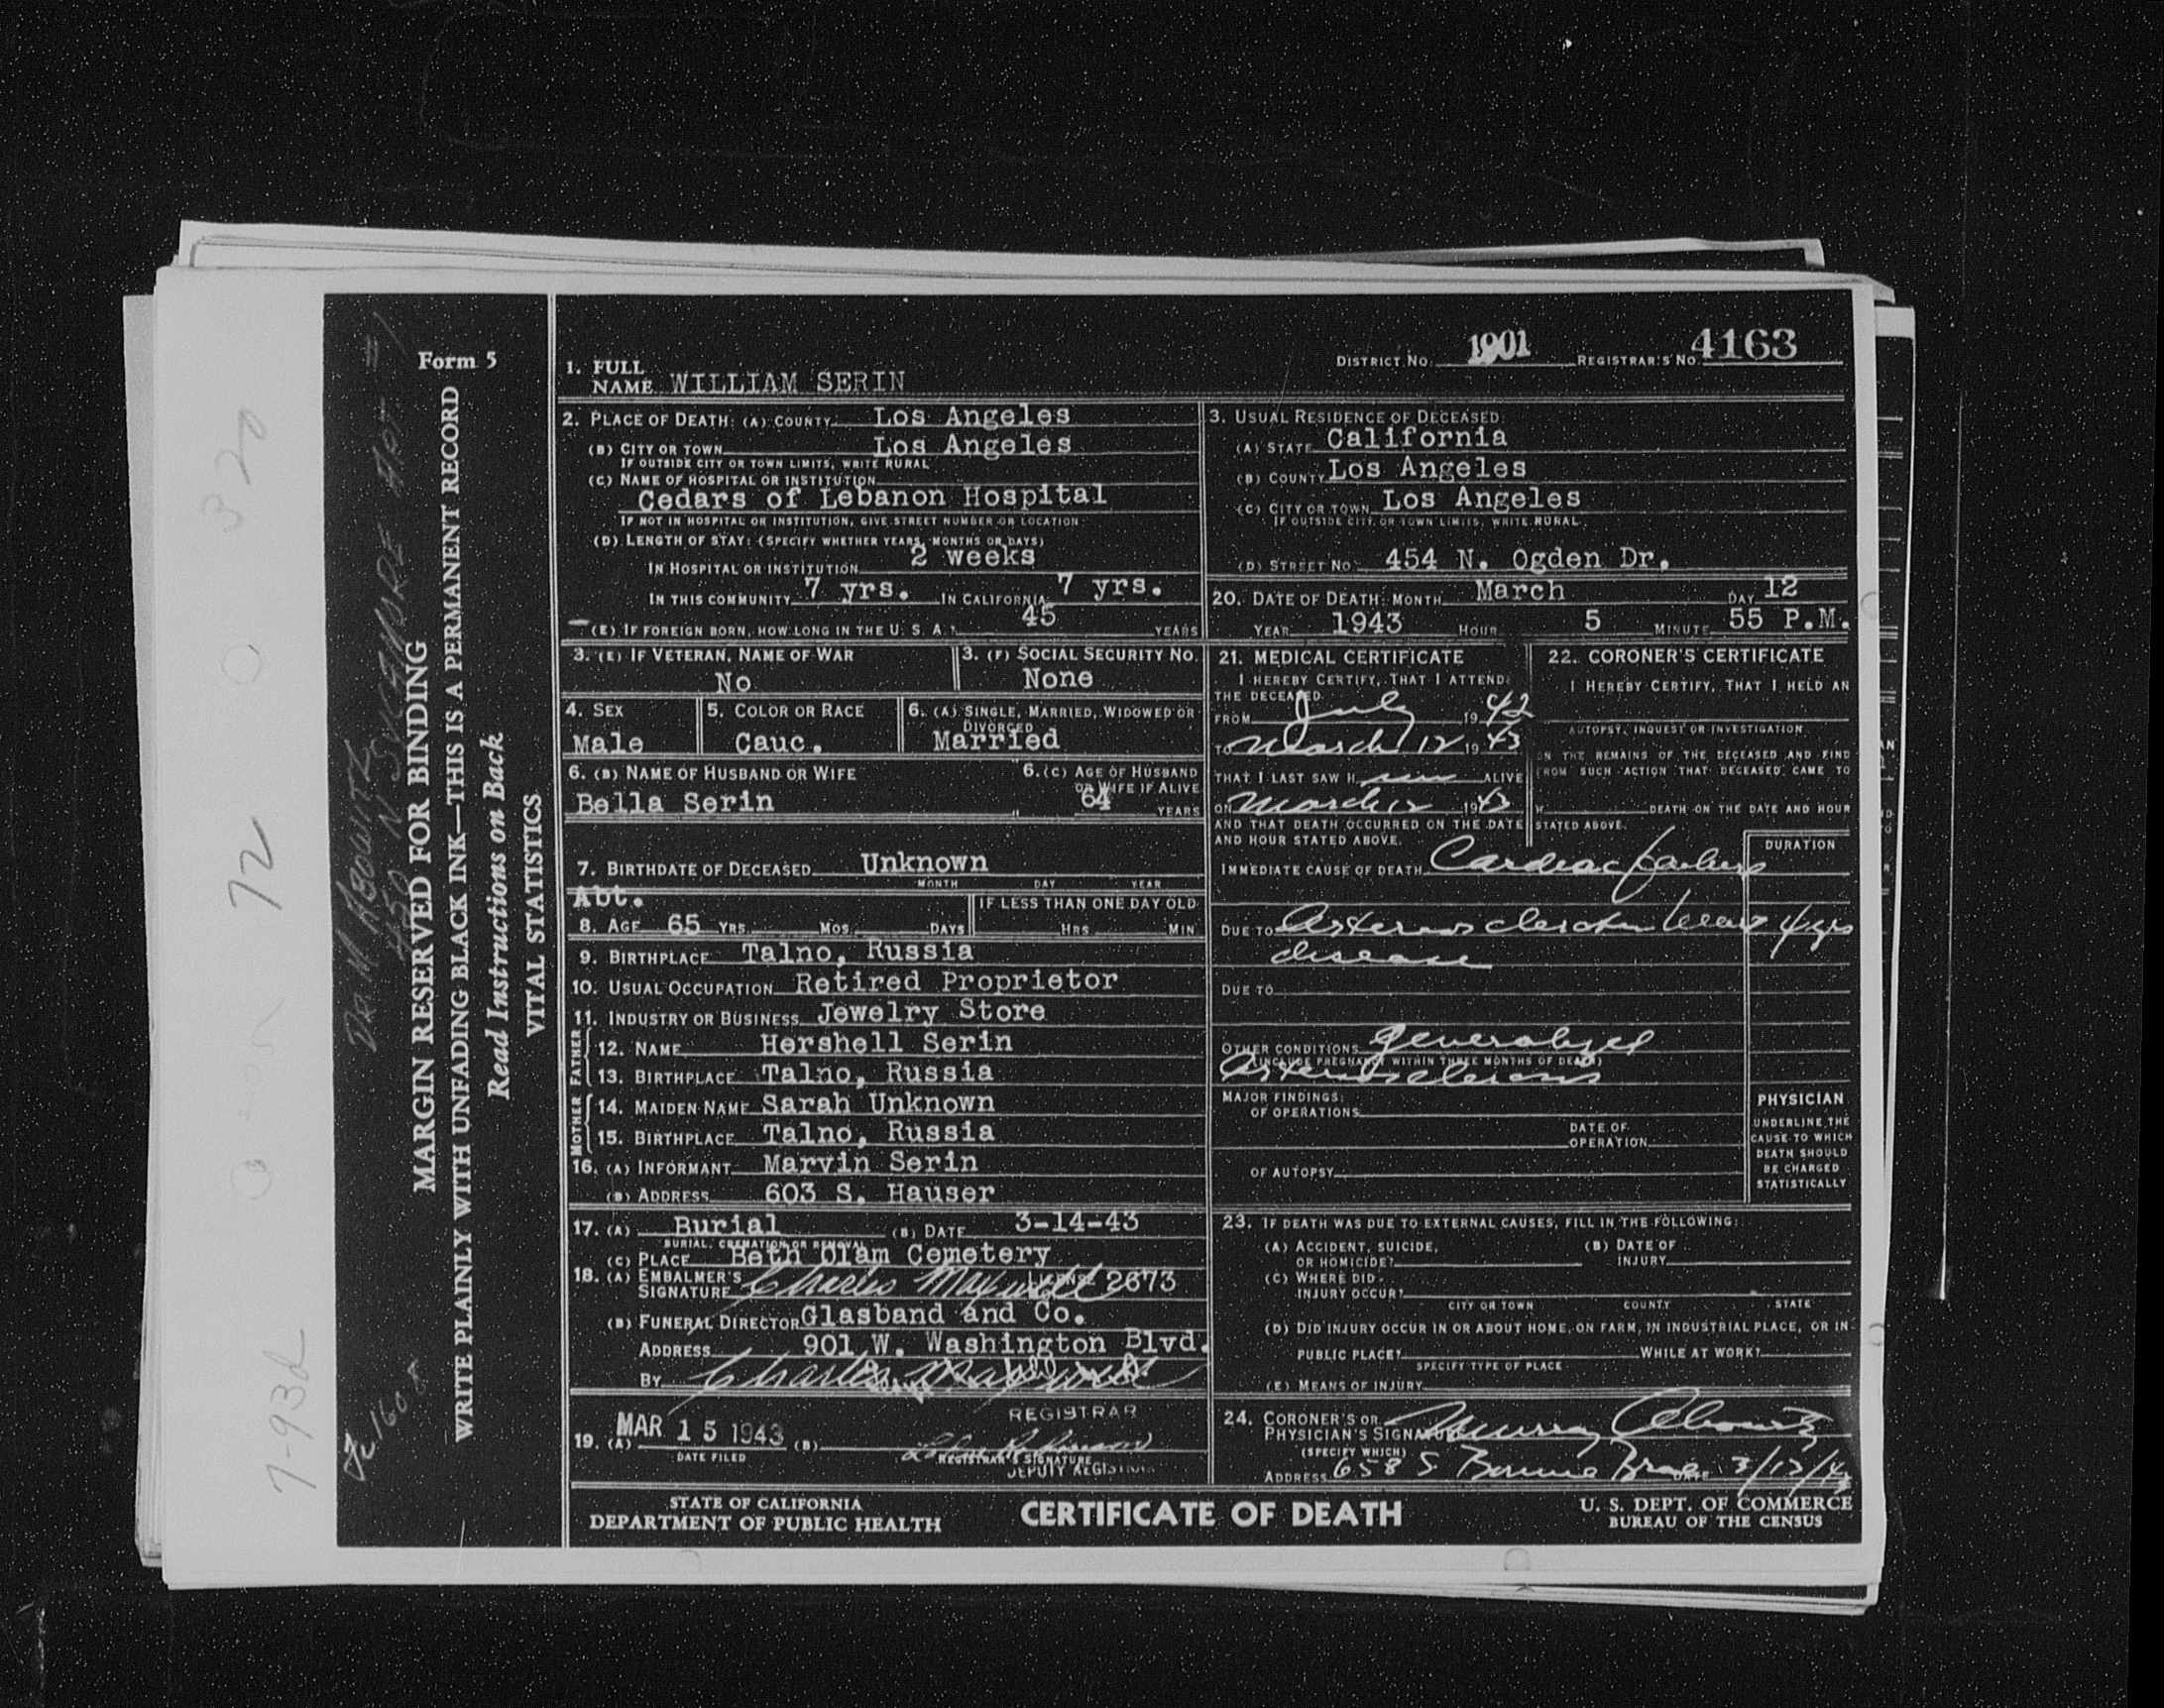 Form 5
MARGIN RESERVED FOR BINDING
WRITE PLAINLY WITH UNFADING BLACK INK—THIS IS A PERMANENT RECORD
Read Instructions on Back
VITAL STATISTICS
320
72
7-93d
DISTRICT NO. 1901 REGISTRAR'S NO. 4163
1. FULL NAME WILLIAM SERIN
2. PLACE OF DEATH: (A) COUNTY Los Angeles
(B) CITY OR TOWN Los Angeles
IF OUTSIDE CITY OR TOWN LIMITS, WRITE RURAL
(C) NAME OF HOSPITAL OR INSTITUTION
Cedars of Lebanon Hospital
IF NOT IN HOSPITAL OR INSTITUTION, GIVE STREET NUMBER OR LOCATION
(D) LENGTH OF STAY: (SPECIFY WHETHER YEARS, MONTHS OR DAYS)
IN HOSPITAL OR INSTITUTION 2 weeks
IN THIS COMMUNITY 7 yrs. IN CALIFORNIA 7 yrs.
(E) IF FOREIGN BORN, HOW LONG IN THE U. S. A.? 45 YEARS
3. USUAL RESIDENCE OF DECEASED
(A) STATE California
(B) COUNTY Los Angeles
(C) CITY OR TOWN Los Angeles
IF OUTSIDE CITY OR TOWN LIMITS, WRITE RURAL
(D) STREET NO. 454 N. Ogden Dr.
20. DATE OF DEATH: MONTH March DAY 12
YEAR 1943 HOUR 5 MINUTE 55 P.M.
3. (E) IF VETERAN, NAME OF WAR
No
3. (F) SOCIAL SECURITY NO.
None
4. SEX
Male
5. COLOR OR RACE
Cauc.
6. (A) SINGLE, MARRIED, WIDOWED OR DIVORCED
Married
6. (B) NAME OF HUSBAND OR WIFE
Bella Serin
6. (C) AGE OF HUSBAND OR WIFE IF ALIVE
64 YEARS
7. BIRTHDATE OF DECEASED Unknown
MONTH DAY YEAR
Abt.
8. AGE 65 YRS. MOS. DAYS
IF LESS THAN ONE DAY OLD
HRS. MIN.
9. BIRTHPLACE Talno, Russia
10. USUAL OCCUPATION Retired Proprietor
11. INDUSTRY OR BUSINESS Jewelry Store
FATHER
12. NAME Hershell Serin
13. BIRTHPLACE Talno, Russia
MOTHER
14. MAIDEN NAME Sarah Unknown
15. BIRTHPLACE Talno, Russia
16. (A) INFORMANT Marvin Serin
(B) ADDRESS 603 S. Hauser
17. (A) Burial (B) DATE 3-14-43
BURIAL, CREMATION OR REMOVAL
(C) PLACE Beth Olam Cemetery
18. (A) EMBALMER'S SIGNATURE Charles Maxwell LICENSE 2673
(B) FUNERAL DIRECTOR Glasband and Co.
ADDRESS 901 W. Washington Blvd.
BY Charles Maxwell
19. (A) MAR 15 1943 (B)
DATE FILED
REGISTRAR
REGISTRAR'S SIGNATURE
DEPUTY REGISTRAR
21. MEDICAL CERTIFICATE
I HEREBY CERTIFY, THAT I ATTEND.
THE DECEASED
FROM July 1942
TO March 12 1943
THAT I LAST SAW H im ALIVE
ON March 12 1943
AND THAT DEATH OCCURRED ON THE DATE
AND HOUR STATED ABOVE.
22. CORONER'S CERTIFICATE
I HEREBY CERTIFY, THAT I HELD AN
AUTOPSY, INQUEST OR INVESTIGATION
ON THE REMAINS OF THE DECEASED AND FIND
FROM SUCH ACTION THAT DECEASED CAME TO
DEATH ON THE DATE AND HOUR
STATED ABOVE.
DURATION
IMMEDIATE CAUSE OF DEATH Cardiac failure
DUE TO Arteriosclerotic heart 4 yrs
disease
DUE TO
OTHER CONDITIONS generalized
(INCLUDE PREGNANCY WITHIN THREE MONTHS OF DEATH)
arteriosclerosis
MAJOR FINDINGS:
OF OPERATIONS
DATE OF OPERATION
OF AUTOPSY
PHYSICIAN
UNDERLINE THE
CAUSE TO WHICH
DEATH SHOULD
BE CHARGED
STATISTICALLY
23. IF DEATH WAS DUE TO EXTERNAL CAUSES, FILL IN THE FOLLOWING:
(A) ACCIDENT, SUICIDE, OR HOMICIDE? (B) DATE OF INJURY
(C) WHERE DID INJURY OCCUR?
CITY OR TOWN COUNTY STATE
(D) DID INJURY OCCUR IN OR ABOUT HOME, ON FARM, IN INDUSTRIAL PLACE, OR IN
PUBLIC PLACE? WHILE AT WORK?
SPECIFY TYPE OF PLACE
(E) MEANS OF INJURY
24. CORONER'S OR PHYSICIAN'S SIGNATURE Murray Abowitz
(SPECIFY WHICH)
ADDRESS 658 S Bonnie Brae DATE 3/12/43
STATE OF CALIFORNIA
DEPARTMENT OF PUBLIC HEALTH
CERTIFICATE OF DEATH
U. S. DEPT. OF COMMERCE
BUREAU OF THE CENSUS